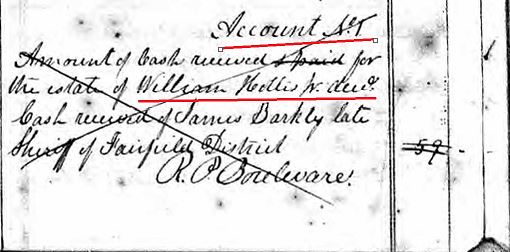 Account No. 1
Amount of Cash received & paid for
the estate of William Hollis Jr. decd.
Cash received of James Barkly late
Sheriff of Fairfield District
59 -
R. P. Bouleware.